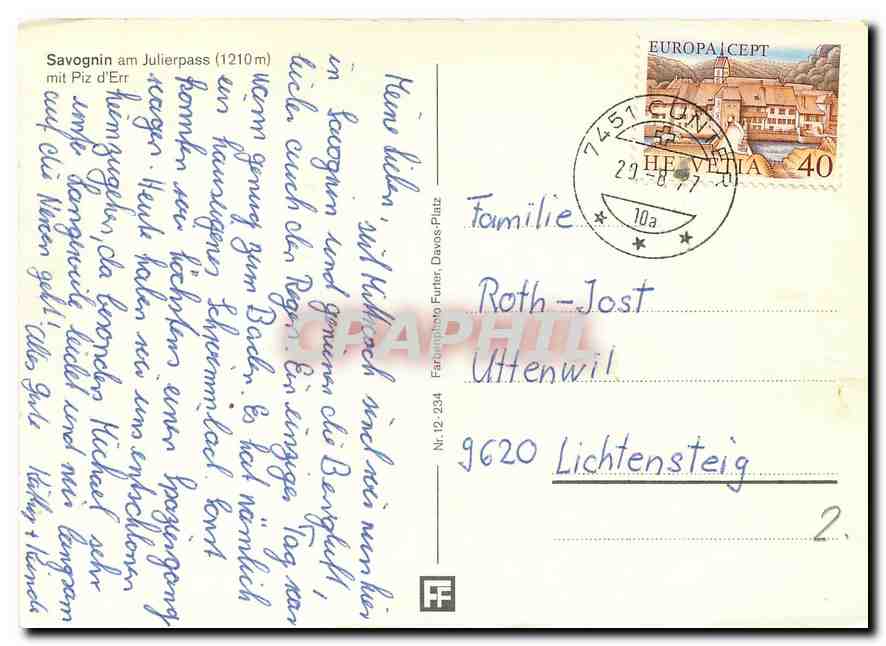 Savognin am Julierpass (1210 m)
mit Piz d'Err
Meine Lieben, seit Mittwoch sind wir nun hier
in Savognin und geniessen die Bergluft,
leider auch den Regen. Ein einziger Tag war
warm genug zum Baden. Es hat nämlich
ein hauseigenes Schwimmbad. Sonst
konnten wir höchstens einen Spaziergang
wagen. Heute haben wir uns entschlossen
heimzugehen, da besonders Michael sehr
unter Langeweile leidet und mir langsam
auf die Nerven geht! Alles Gute Käthy + Kinder
Nr. 12-234 Farbenphoto Furter, Davos-Platz
FF
EUROPA CEPT
HELVETIA 40
7451 CUNTER
29.-8.77
10a
Familie
Roth-Jost
Uttenwil
9620 Lichtensteig
2.
CPAPHIL